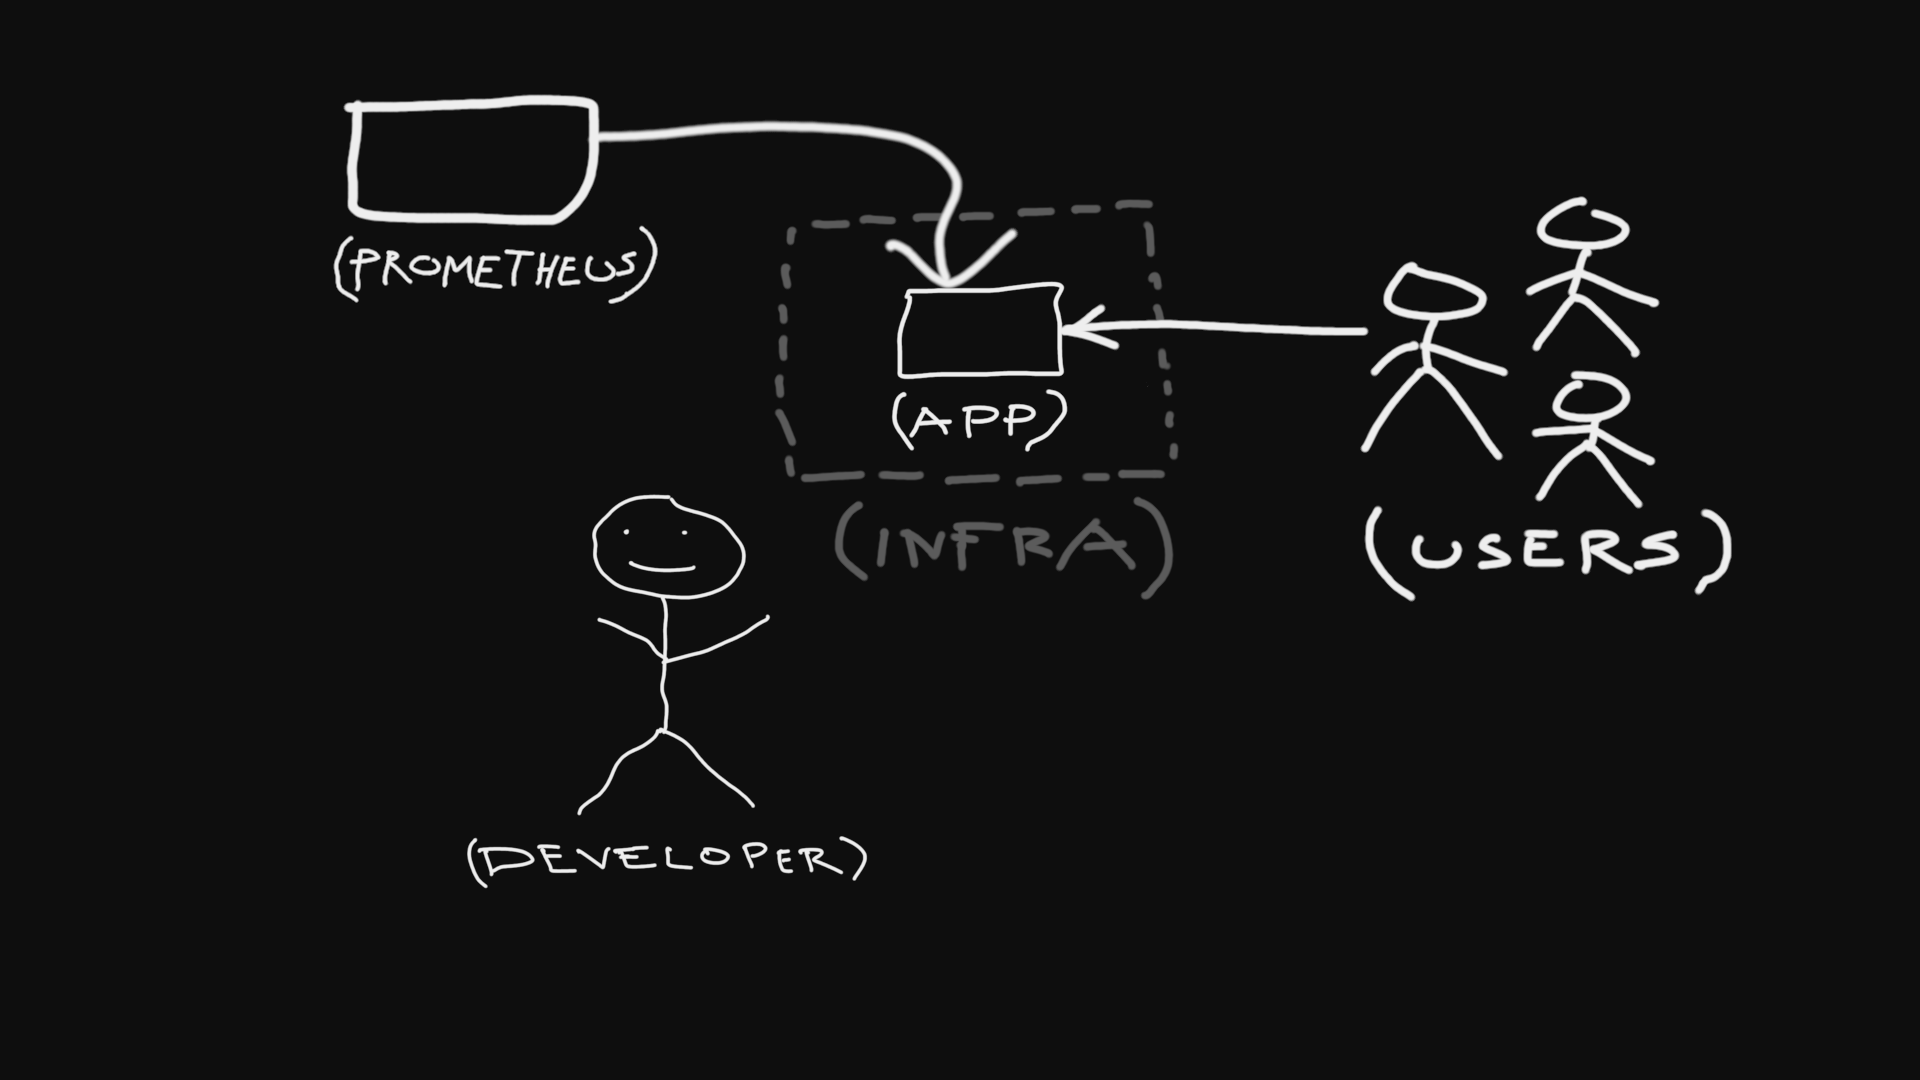 (PROMETHEUS)
(APP)
(INFRA)
(USERS)
(DEVELOPER)